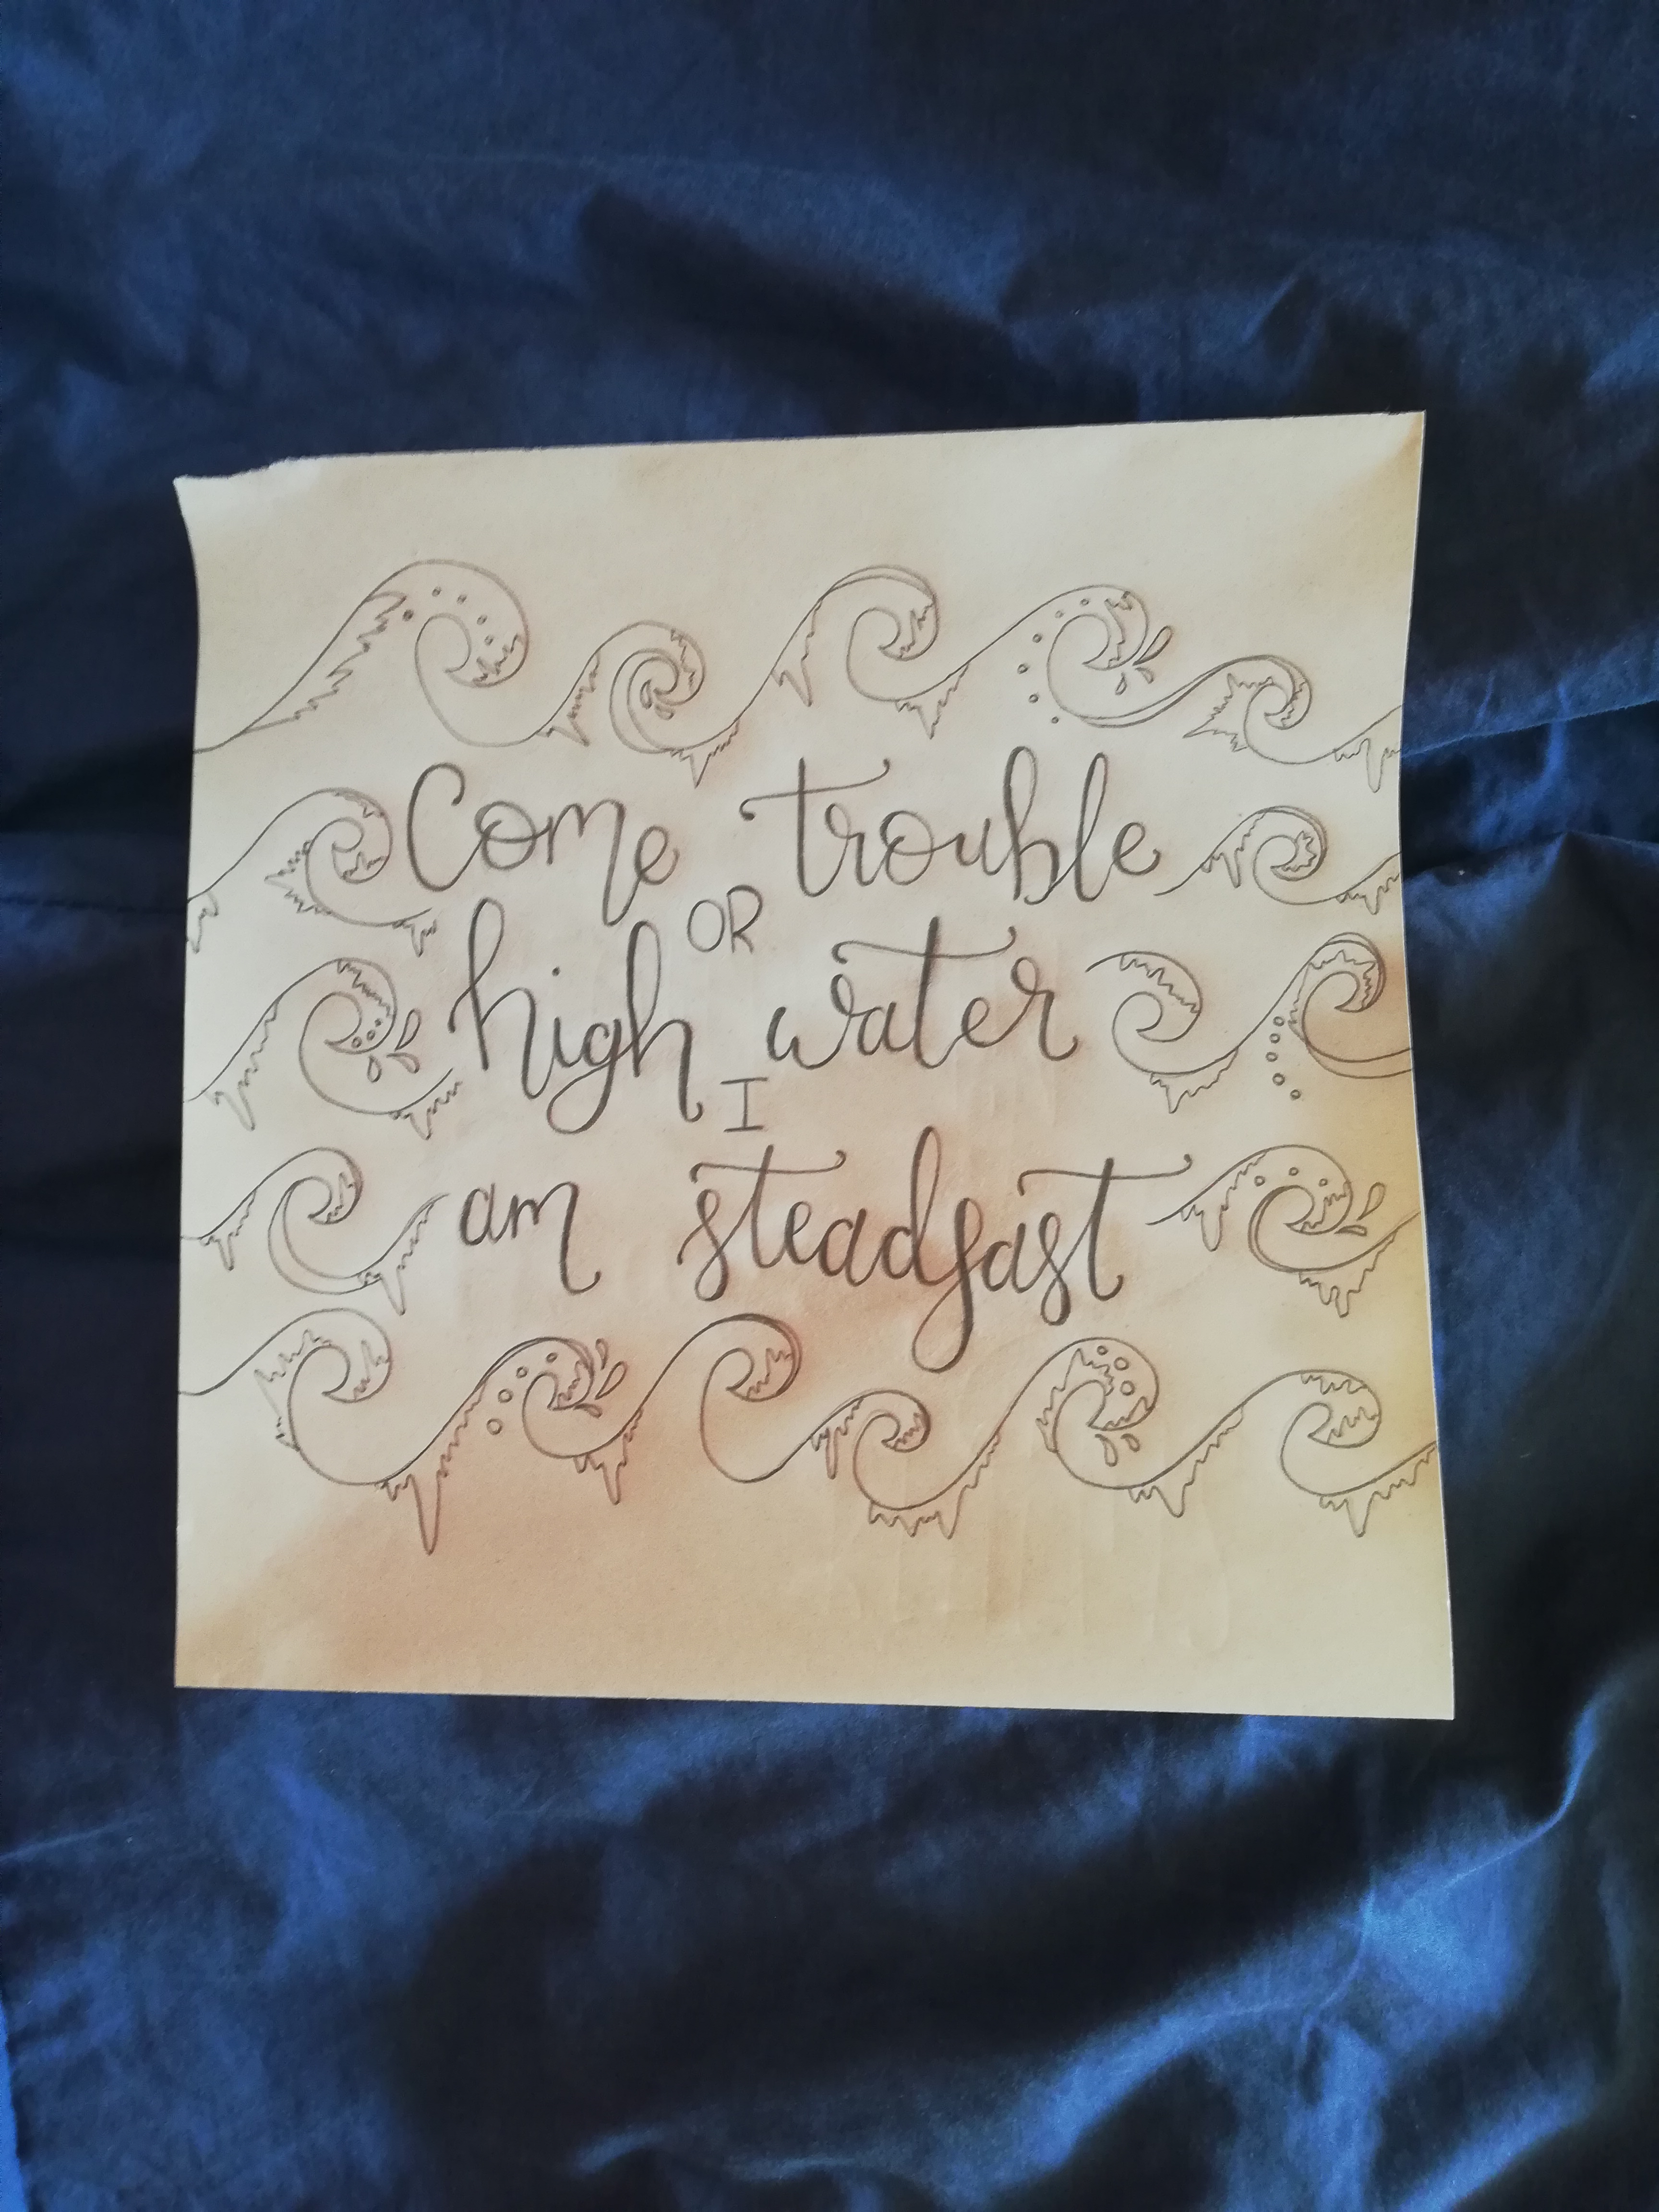 Come trouble
OR
high water
I
am steadfast